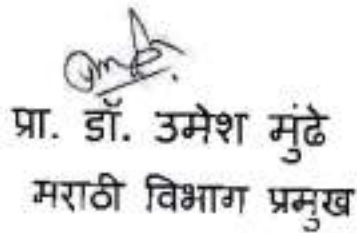 प्रा. डॉ. उमेश मुंढे
मराठी विभाग प्रमुख